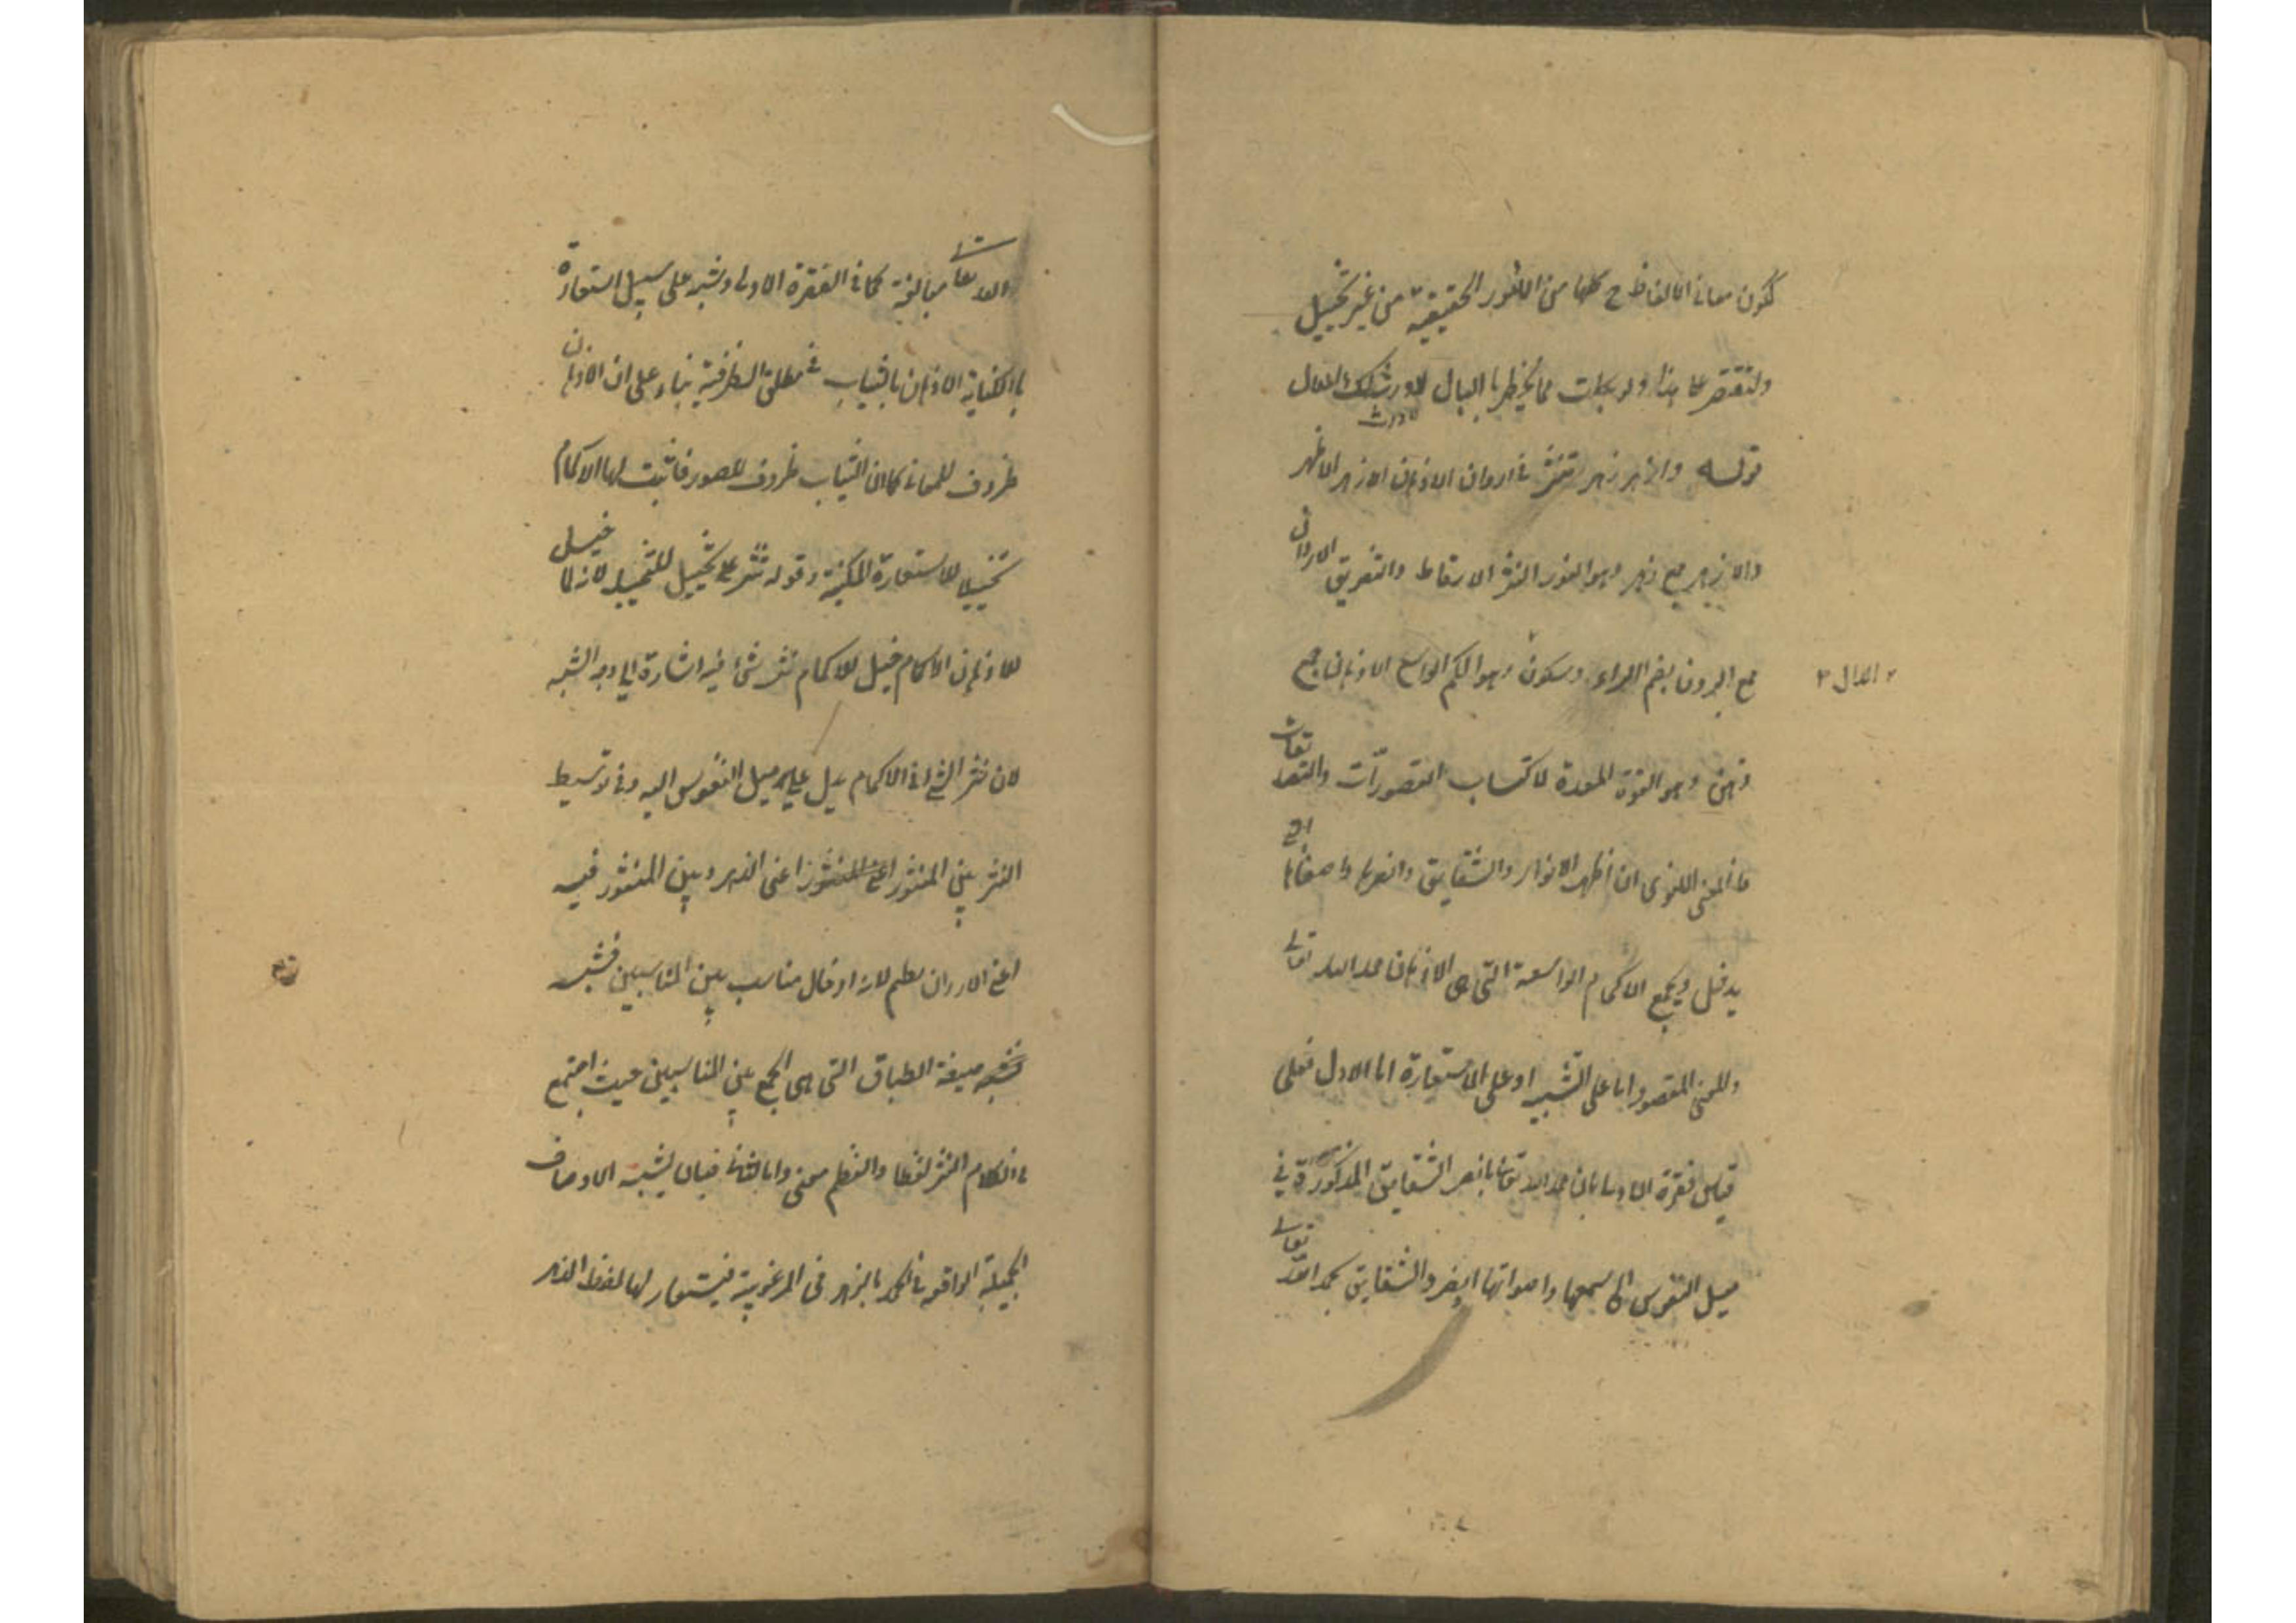 لكون معانى الالفاظ ح كلها من الامور الحقيقية من غير تخييل
ولنقتصر على هذا ولو بكلت مما يخطر بالبال
قوله وازهر زهر تنثر فى اردان الاذهان الازهر الاظهر
والازهر جمع زهر وهو النور النثر الاسقاط والتفريق الاردان
جمع الردن بضم الراء وسكون وهو الكم الواسع الاذهان جمع
الدال
ذهن وهو القوة المعدة لاكتساب التصورات والتصديقات
فالمعنى اللغوى ان اظهر الانوار والشقايق وانضرها واصفاها
يدخل ويجمع الاكمام الواسعة التى هى الاذهان حمد الله تعالى
والمعنى المقصود اما على التشبيه او على الاستعارة اما الاول فعلى
قياس فقرة الاولى بان حمد الله تعالى بانضر الشقايق المذكورة فى
ميل النفوس الى سمعها وادواتها ايضر والشقايق بحمد الله تعالى
والله تعالى مبالغة كما فى الفقرة الاولى ويشبه على سبيل استعارة
بالكناية الاذهان بالثياب فى مطلق الظرفية بناء على ان الاذهان
ظروف للمعانى كما ان الثياب ظروف للصور فاثبت لها الاكمام
تخييلا للاستعارة المكنية وقوله تنثر على تخييل للتخييل لانه لما خيل
للاذهان الاكمام خيل للاكمام نثر شئ فيه اشارة الى وجه الشبه
لان نثر الشئ فى الاكمام يدل على ميل النفوس اليه وفى توسيط
النثر بين المنثور اعنى الزهر وبين المنثور فيه
اعنى الاردان نظم لانه ادخال مناسب بين المناسبين فشبه
صيغة الطباق التى هى الجمع بين المناسبين حيث اجتمع
فى الكلام النثر لفظا والنظم معنى واما الثانى فبان يشبه الاوصاف
الجميلة الواقعة فى الحمد بالزهر فى المرغوبية فيستعار لها لفظ الزهر